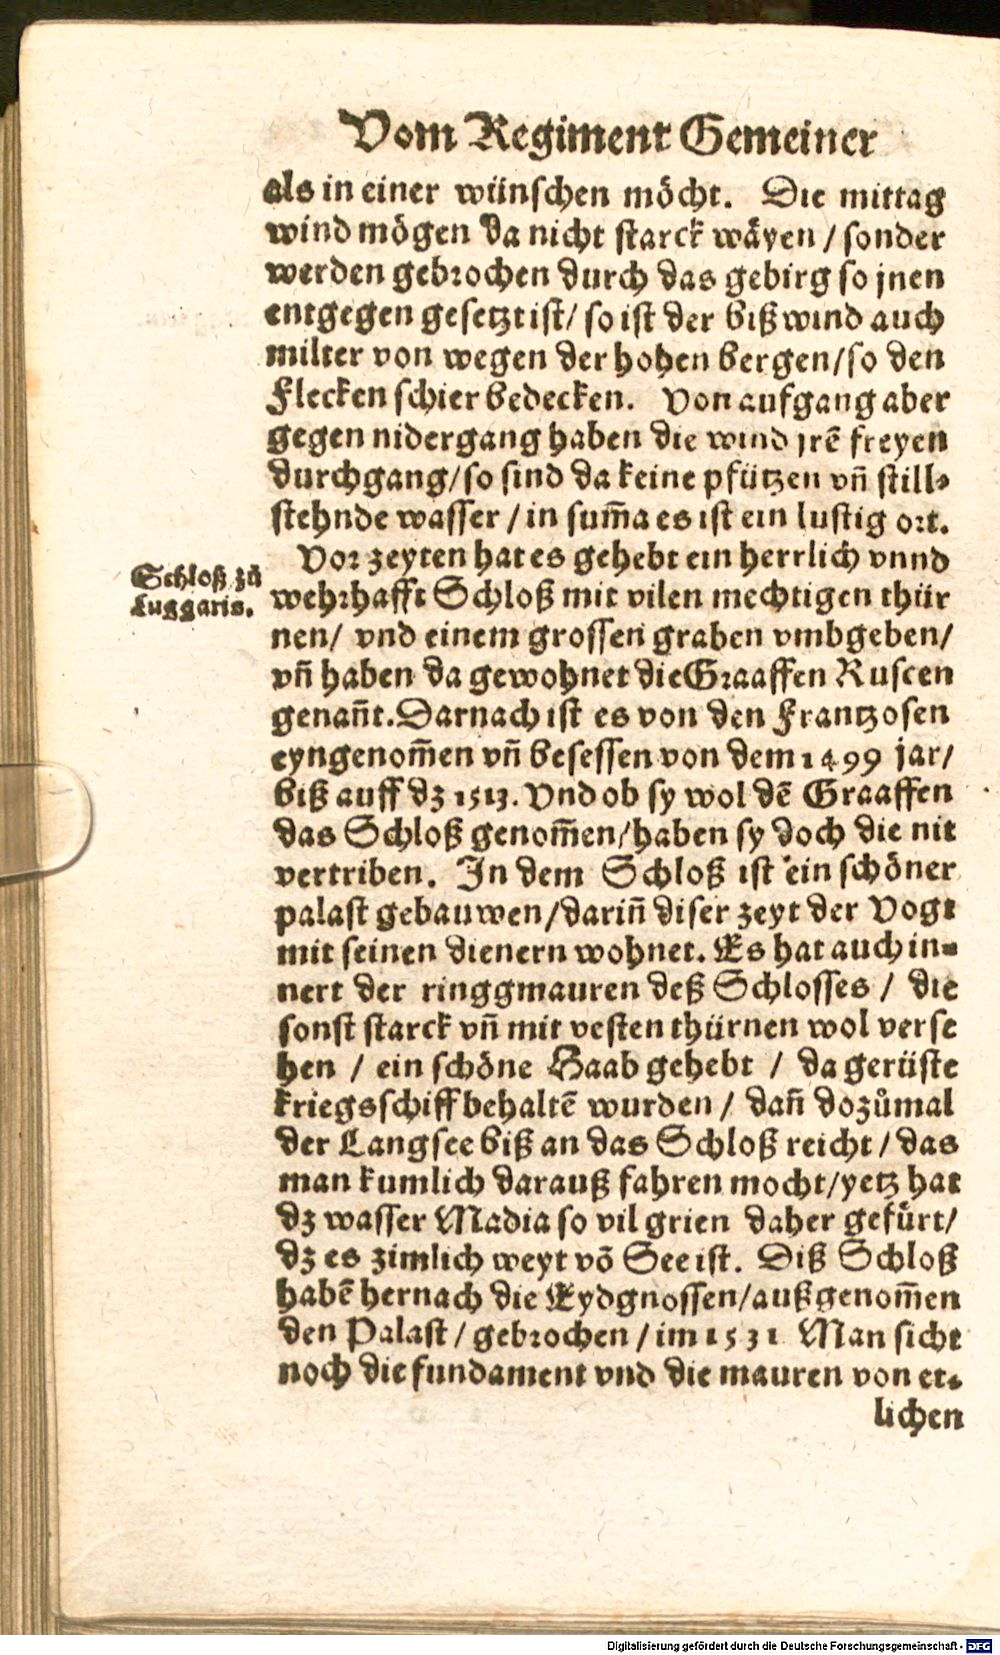 Vom Regiment Gemeiner
als in einer wünschen möcht. Die mittag
wind mögen da nicht starck wäyen / sonder
werden gebrochen durch das gebirg so jnen
entgegen gesetzt ist / so ist der bißwind auch
milter von wegen der hohen bergen / so den
Flecken schier bedecken. Von aufgang aber
gegen nidergang haben die wind jrē freyen
durchgang / so sind da keine pfützen vñ still⸗
stehnde wasser / in sum̄a es ist ein lustig ort.
Vor zeyten hat es gehebt ein herrlich vnnd
Schloß zů
Luggaris.
wehrhafft Schloß mit vilen mechtigen thür
nen / vnd einem grossen graben vmbgeben /
vñ haben da gewohnet die Graaffen Ruscen
genañt. Darnach ist es von den Frantzosen
eyngenom̄en vñ besessen von dem 1499 jar /
biß auff dz 1513. Vnd ob sy wol dē Graaffen
das Schloß genom̄en / haben sy doch die nit
vertriben. In dem Schloß ist ein schöner
palast gebauwen / dariñ diser zeyt der Vogt
mit seinen dienern wohnet. Es hat auch in⸗
nert der ringgmauren deß Schlosses / die
sonst starck vñ mit vesten thürnen wol verse
hen / ein schöne Haab gehebt / da gerüste
kriegsschiff behaltē wurden / dañ dozůmal
der Langsee biß an das Schloß reicht / das
man kumlich darauß fahren mocht / yetz hat
dz wasser Madia so vil grien daher gefürt /
dz es zimlich weyt võ See ist. Diß Schloß
habē hernach die Eydgnossen / außgenom̄en
den Palast / gebrochen / im 1531 Man sicht
noch die fundament vnd die mauren von et⸗
lichen
Digitalisierung gefördert durch die Deutsche Forschungsgemeinschaft - DFG